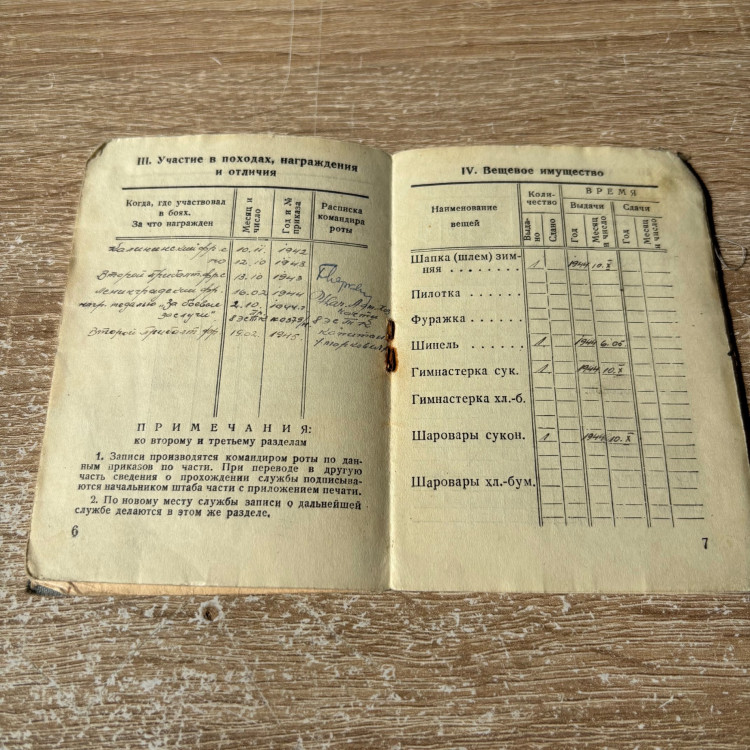 III. Участие в походах, награждения
и отличия
Когда, где участвовал
в боях.
За что награжден
Месяц и
число
Год и №
приказа
Расписка
командира
роты
Калининский фр. с 10. 1942
по 12.10 1943
Второй прибалт. фр. с 13.10 1943
Ленинградский фр. 16.02 1944
нагр. медалью "За боевые 2.10. 1944
заслуги"
Второй Прибалт. фр. 1945
капитан
ПРИМЕЧАНИЯ:
ко второму и третьему разделам
1. Записи производятся командиром роты по дан-
ным приказов по части. При переводе в другую
часть сведения о прохождении службы подписыва-
ются начальником штаба части с приложением печати.
2. По новому месту службы записи о дальнейшей
службе делаются в этом же разделе.
6
IV. Вещевое имущество
Наименование
вещей
Коли-
чество
Выда-
но
Сдано
ВРЕМЯ
Выдачи
Сдачи
Год
Месяц
и число
Год
Месяц
и число
Шапка (шлем) зим-
няя . . . . . . . . 1 1944 10.X
Пилотка . . . . . .
Фуражка . . . . . .
Шинель . . . . . . 1 1944 6.05
Гимнастерка сук. 1 1944 10.X
Гимнастерка хл.-б.
Шаровары сукон. 1 1944 10.X
Шаровары хл.-бум.
7